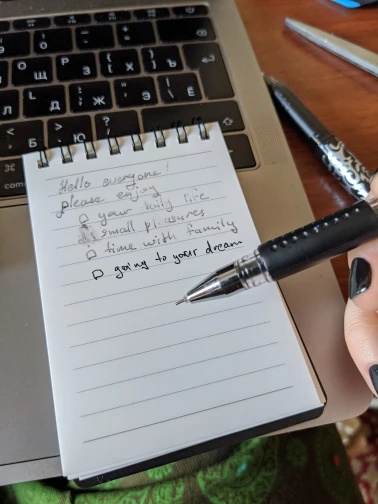 0
O Щ P З Х Ъ
L Д Ж Э Ё
< Б > Ю
⌘
Hello everyone!
please enjoy
□ your daily life
small pleasures
□ time with family
□ going to your dream